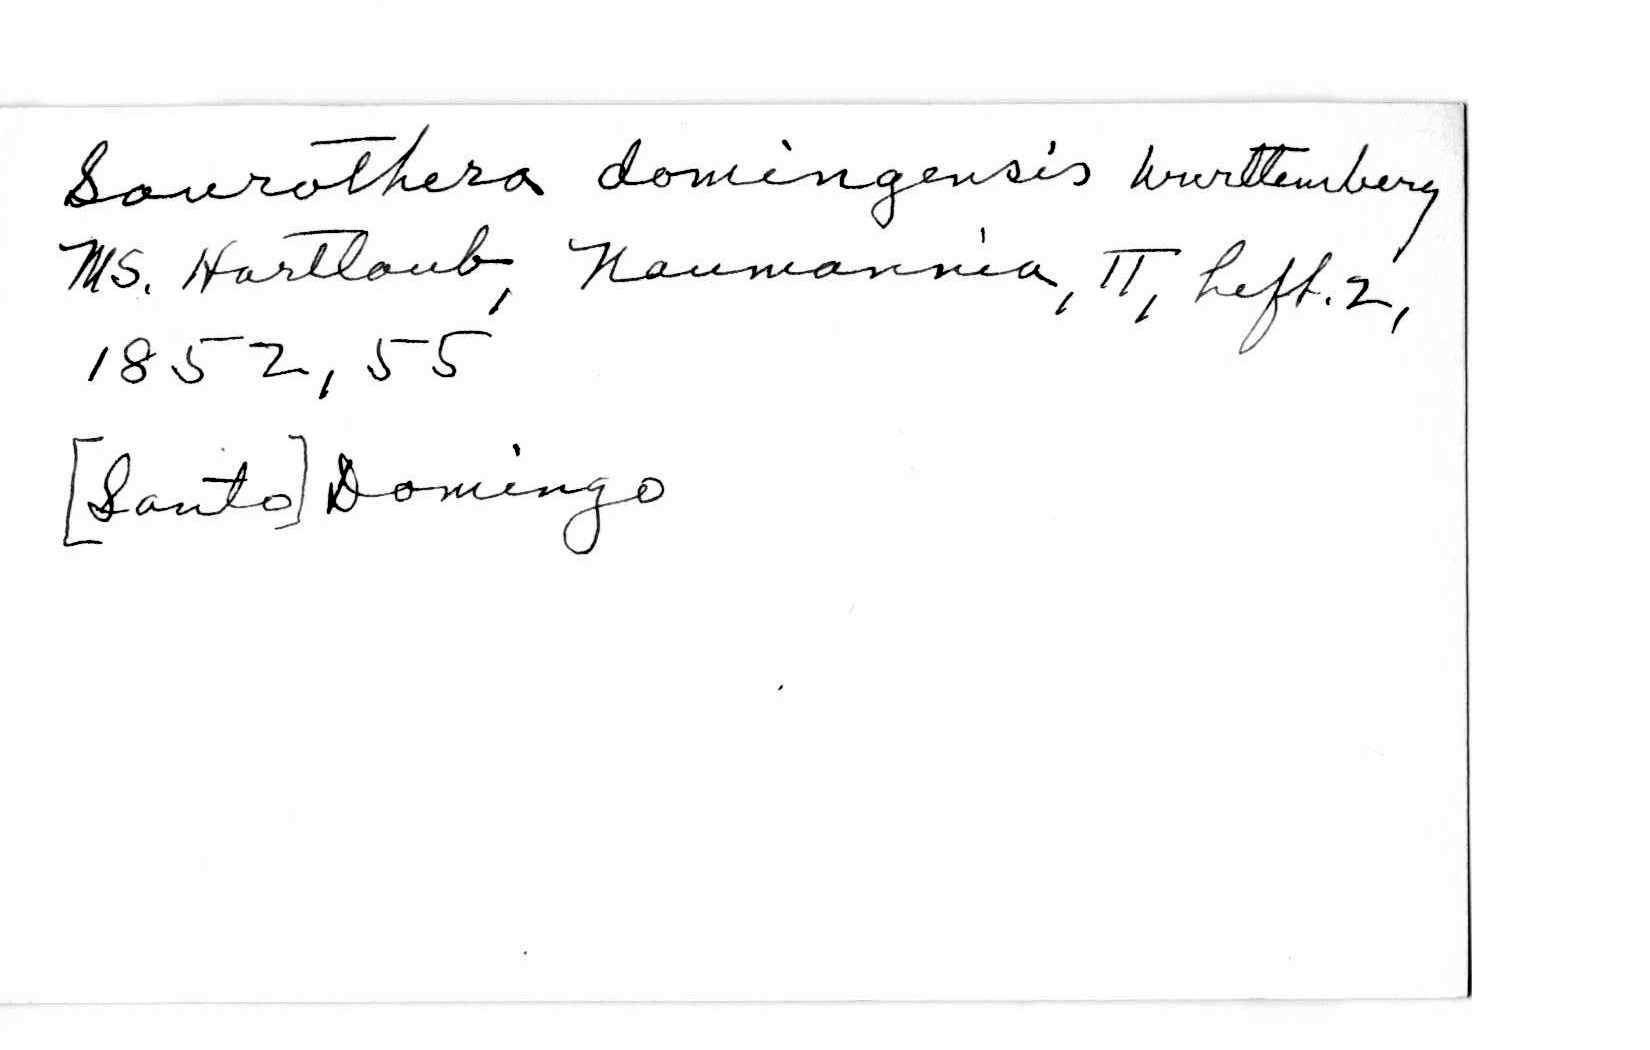 Saurothera domingensis Wurttemberg
MS. Hartlaub, Naumannia, II, heft. 2,
1852, 55
[Santo] Domingo